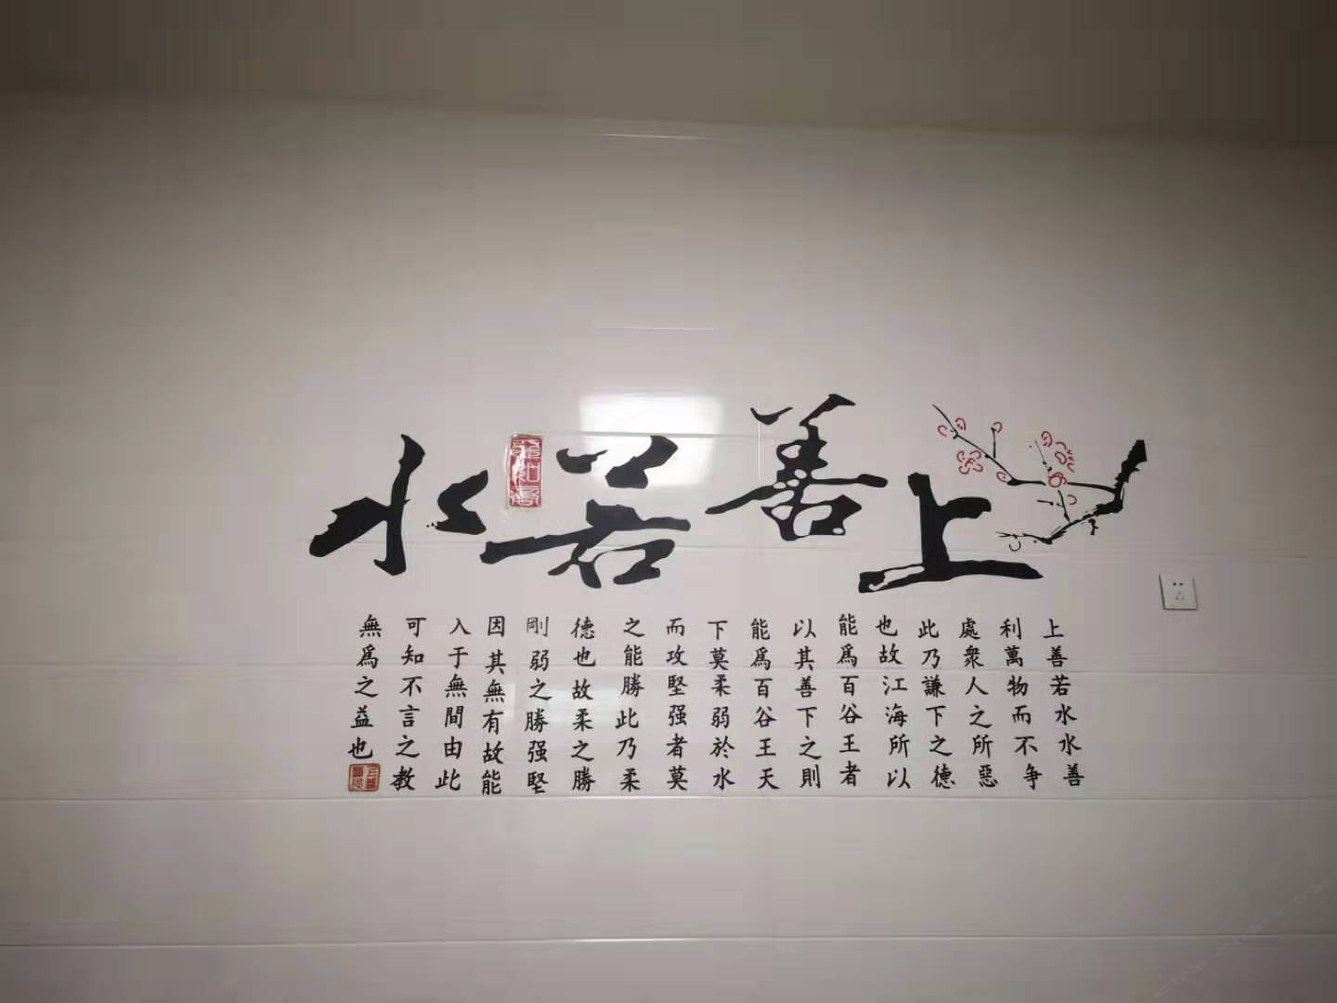 上善若水
上善若水水善
利萬物而不争
處衆人之所惡
此乃謙下之德
也故江海所以
能爲百谷王者
以其善下之則
能爲百谷王天
下莫柔弱於水
而攻堅强者莫
之能勝此乃柔
德也故柔之勝
剛弱之勝强堅
因其無有故能
入于無間由此
可知不言之教
無爲之益也